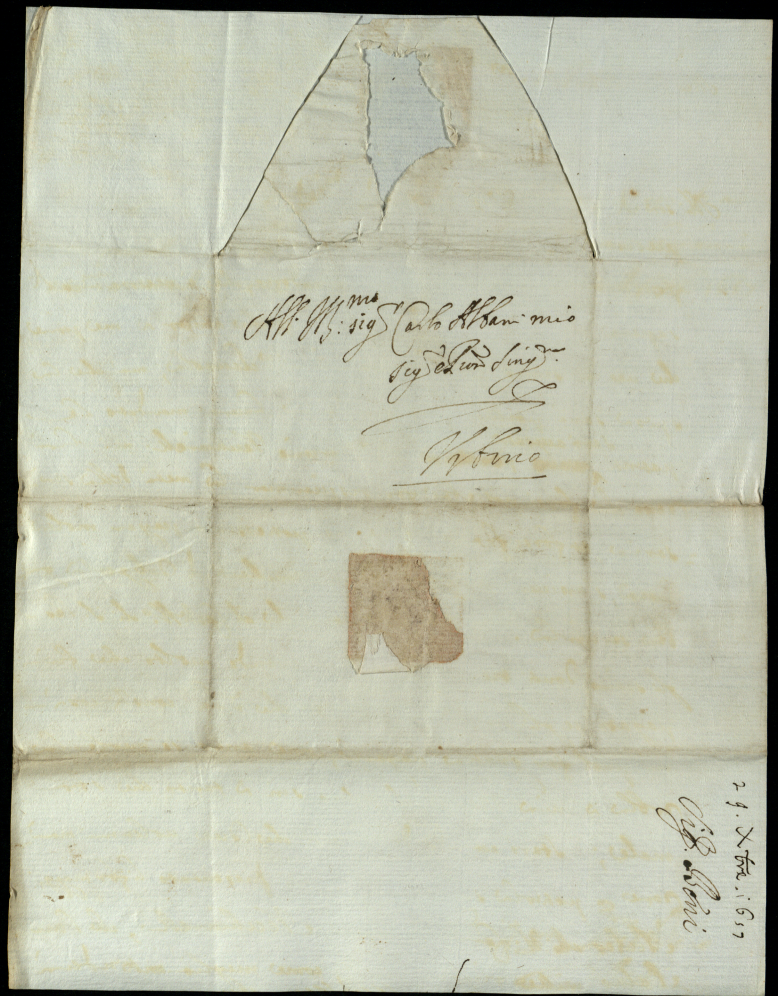 All: Ill:mo sig.r Carlo Albani mio
sig.r e Pron Sing.re
Urbino
29. Xbre. 1657
Sig.r Boni